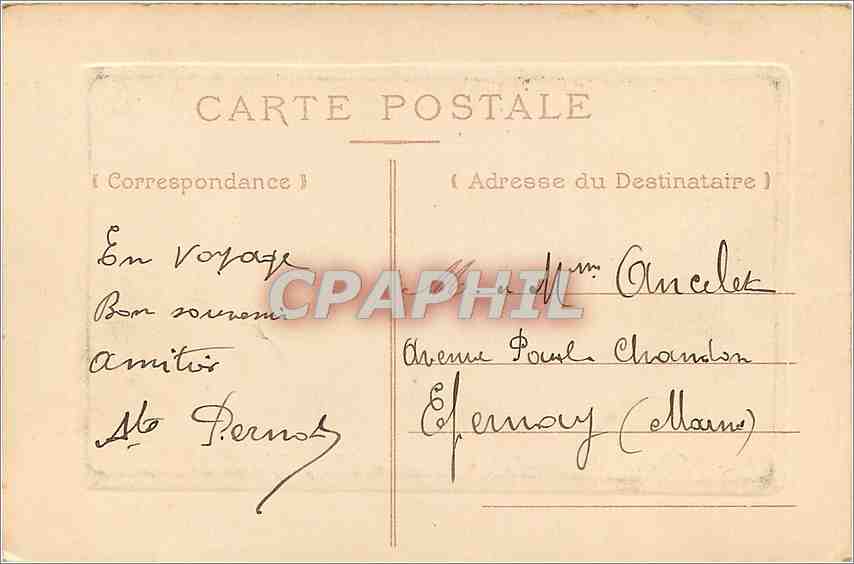 CARTE POSTALE
( Correspondance )
En voyage
Bon souvenir
Amitiés
Pernot
( Adresse du Destinataire )
M. et Mme Ancelet
Avenue Paul Chandon
Epernay (Marne)
CPAPHIL